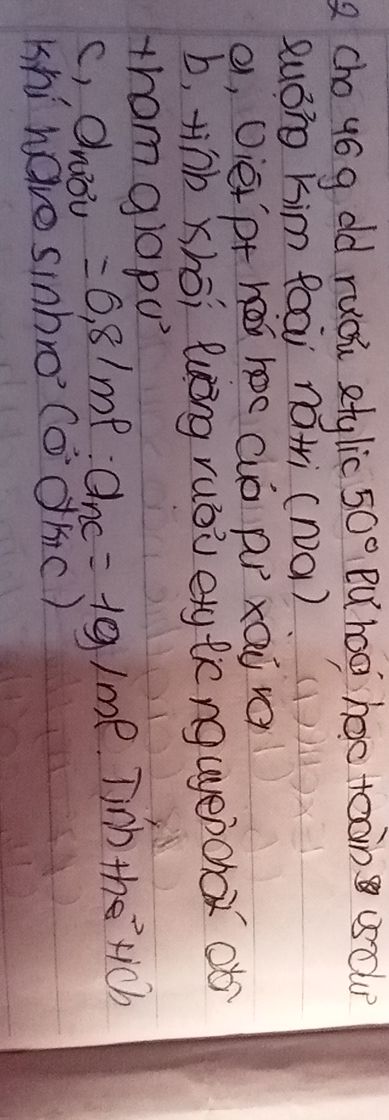 2 Cho 46g dd rượu etylic 50° pứ hoá học toàn với dư
lượng kim loại natri (Na)
a, Viết pt hoá học của pứ xảy ra
b, tính khối lượng rượu etylic nguyên chất đã
tham gia pứ
c, drượu = 0,8/ml. dnc = 1g/ml. Tính thể tích
khí hiđro sinh ra (ở đktc)